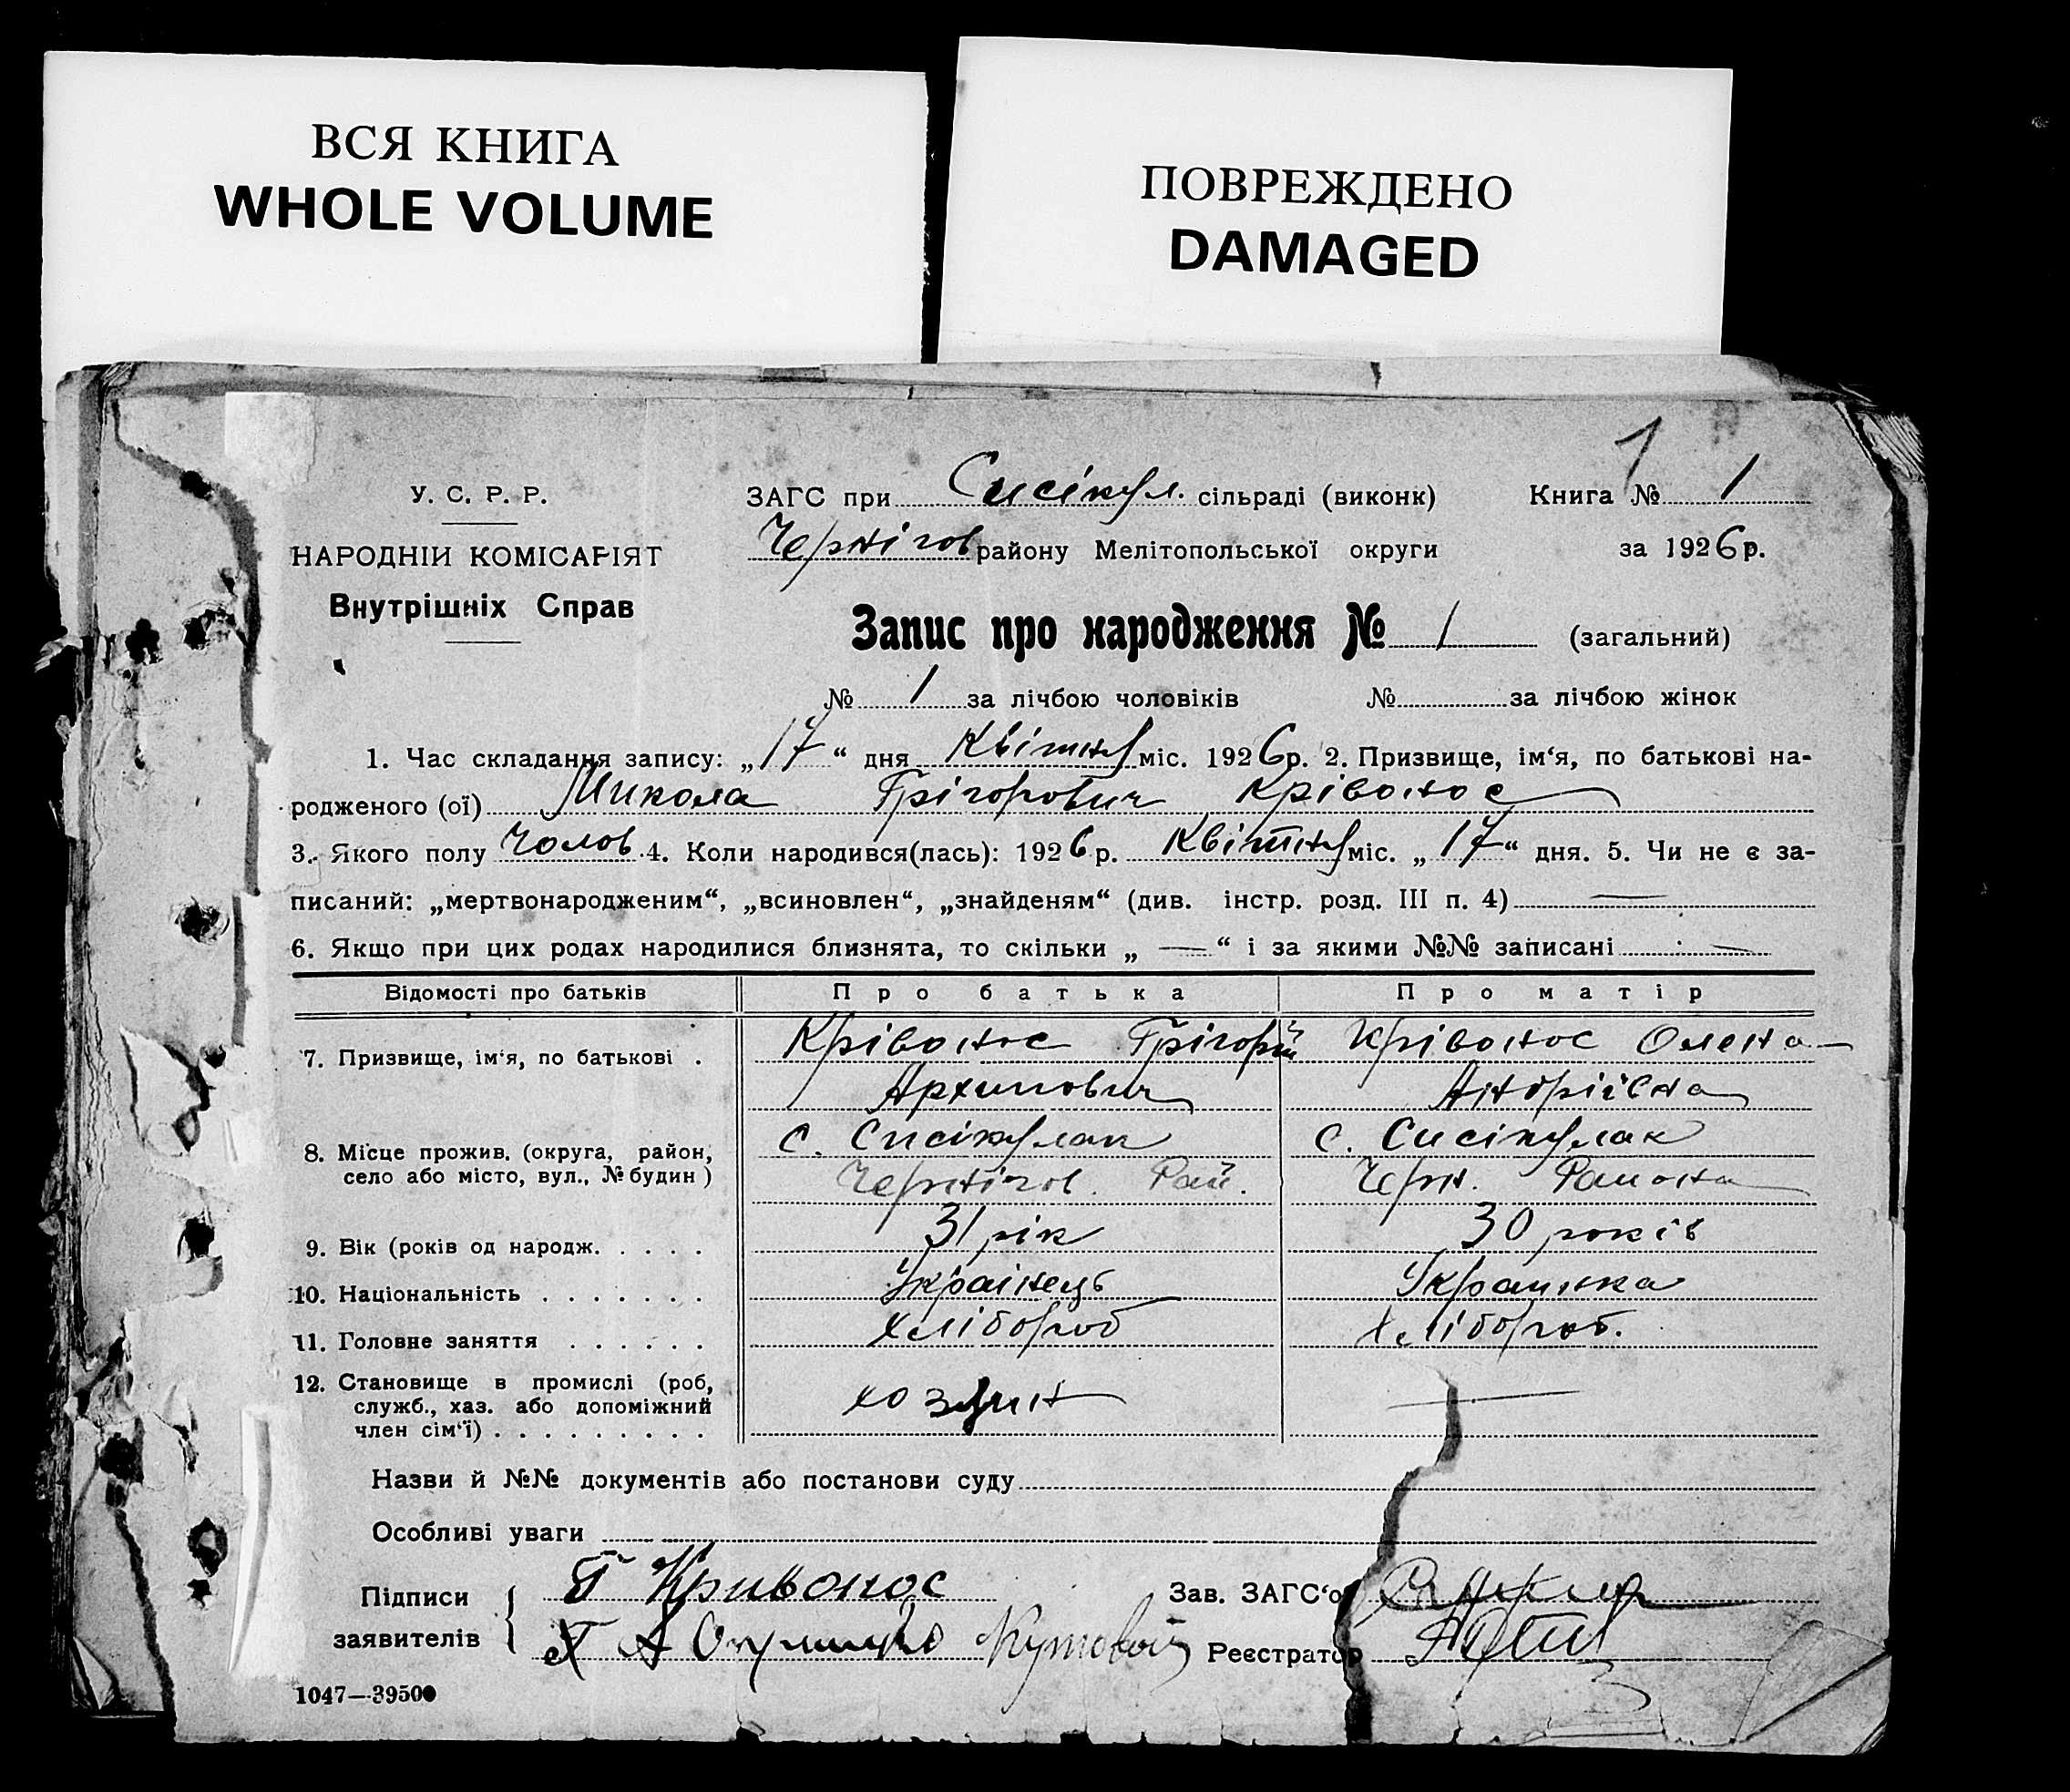 ВСЯ КНИГА
WHOLE VOLUME
ПОВРЕЖДЕНО
DAMAGED
1
У. С. Р. Р.
НАРОДНІЙ КОМІСАРІЯТ
Внутрішніх Справ
ЗАГС при Сисікул. сільраді (виконк) Книга № 1
Чернігов району Мелітопольської округи за 1926 р.
Запис про народження № 1 (загальний)
№ 1 за лічбою чоловіків № за лічбою жінок
1. Час складання запису: „17“ дня Квітня міс. 1926 р. 2. Призвище, ім‘я, по батькові на-
родженого (ої) Микола Грігорович Крівонос
3. Якого полу Чолов. 4. Коли народився(лась): 1926 р. Квітня міс. „17“ дня. 5. Чи не є за-
писаний: „мертвонародженим“, „всиновлен“, „знайденям“ (див. інстр. розд. III п. 4) —
6. Якщо при цих родах народилися близнята, то скільки „ — “ і за якими №№ записані —
Відомості про батьків Про батька Про матір
7. Призвище, ім‘я, по батькові . Крівонос Грігорій Крівонос Олена
Архипович Андріївна
8. Місце прожив. (округа, район, с. Сисікулак с. Сисікулак
село або місто, вул., № будин ) Чернігов. Рай. Черн. Района
9. Вік (років од народж. . . . . 31 рік 30 років
10. Національність . . . . . . . Українець Украинка
11. Головне заняття . . . . . . хлібороб хлібороб.
12. Становище в промислі (роб, хозяин —
служб., хаз. або допоміжний
член сім‘ї) . . . . . . . . .
Назви й №№ документів або постанови суду
Особливі уваги
Підписи Г Кривонос Зав. ЗАГС‘о
заявителів Кутовой Реєстратор
1047—39500